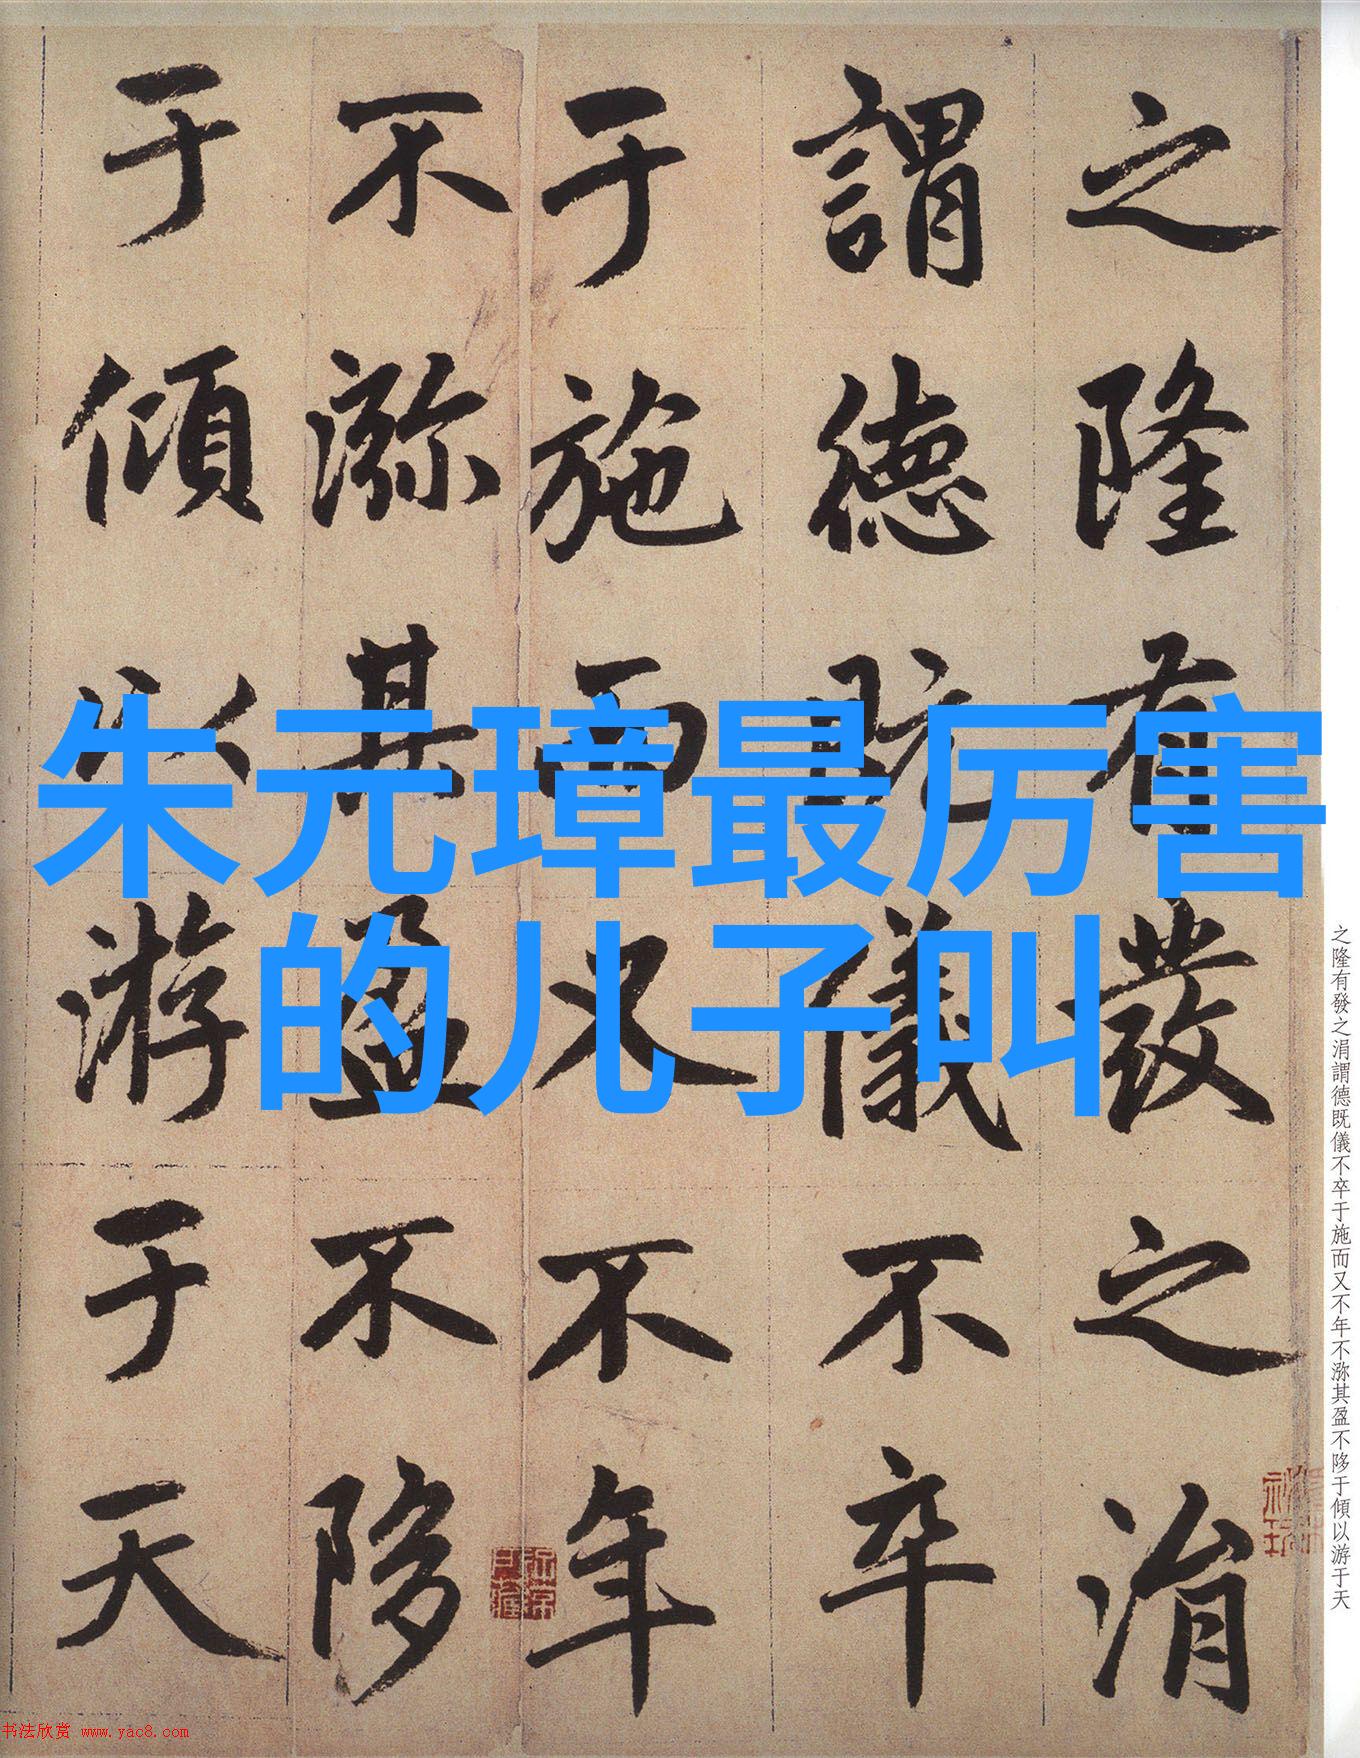 之隆有發之涓
謂德既儀不卒
于施而又不年
不沵其盈不陊
于傾以游于天
朱元璋最厉害
的儿子叫
之隆有發之涓謂德既儀不卒于施而又不年不沵其盈不陊于傾以游于天
书法欣赏 www.yac8.com